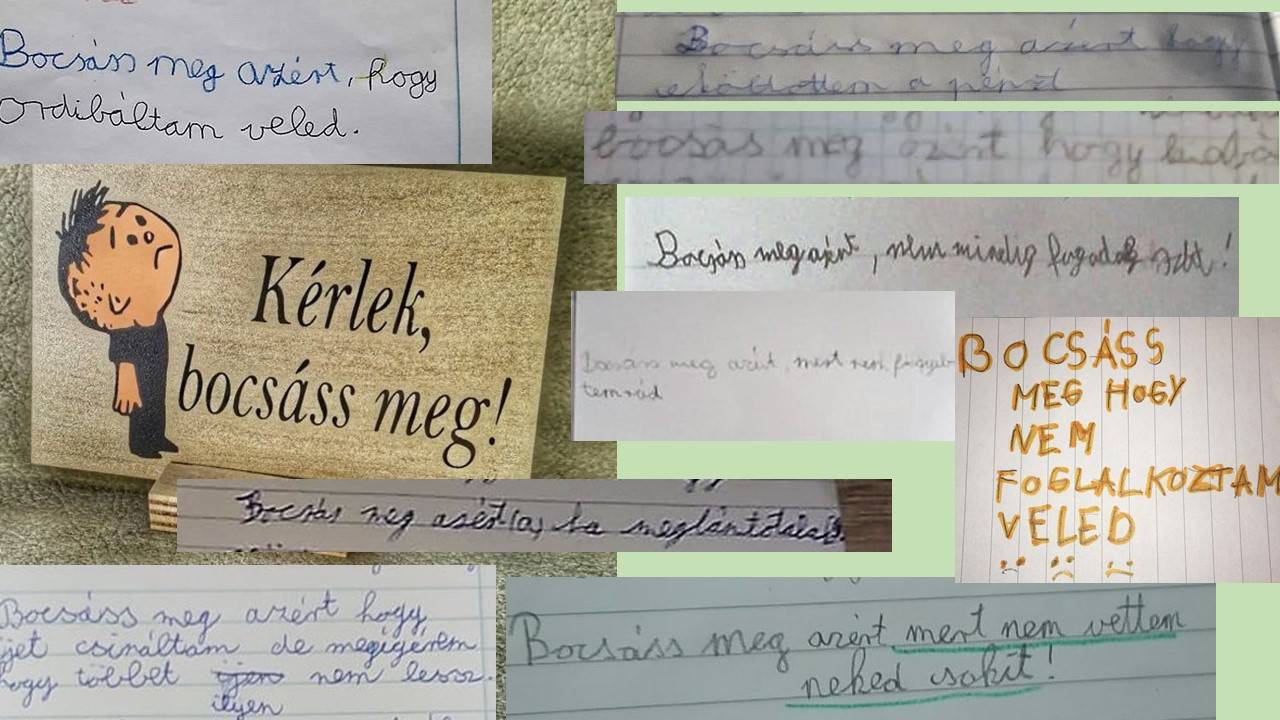 Bocsáss meg azért, hogy
Ordibáltam veled.
Bocsáss meg azért hogy
a pénzt
bocsás meg azért hogy
Kérlek,
bocsáss meg!
Bocsáss meg azért, nem mindig fogadok szót!
Bocsáss meg azért, mert nem figyel-
tem rád
BOCSÁSS
MEG HOGY
NEM
FOGLALKOZTAM
VELED
Bocsás meg azért(a) ha
Bocsáss meg azért hogy
ijet csináltam de megígérem
hogy többet nem lessz.
ilyen
Bocsáss meg azért mert nem vettem
neked csokit!